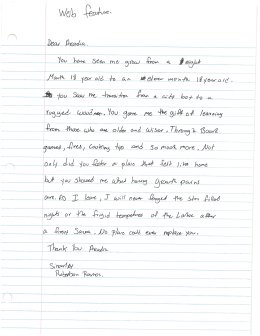 Web feature
Dear Acadia.
You have seen me grow from a eight
Month 18 year old to an month 18 year old.
you saw me transition from a cute boy to a
rugged woodsmen. You gave me the gift of learning
from those who are older and wiser. Through Board
games, fires, cooking tips and so much more. Not
only did you foster a place that felt like home
but you showed me what having growth pains
are. As I leave, I will never forget the star filled
nights or the frigid of the Lake after
a Sauna. No place could ever replace you.
Thank You Acadia
Sincerley
Robertson